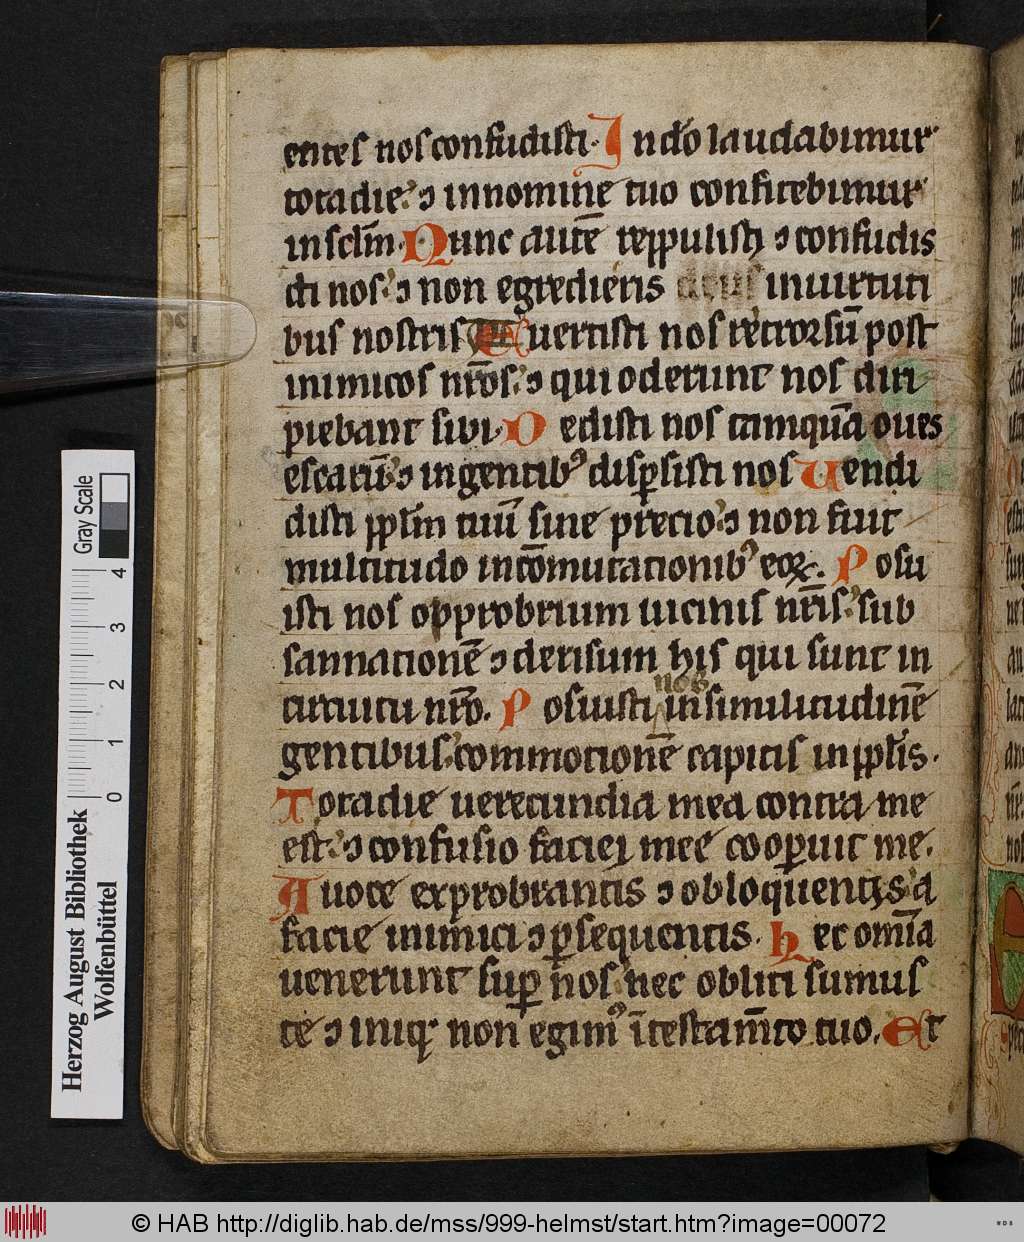 entes nos confudisti. In deo laudabimur
tota die. ⁊ in nomine tuo confitebimur
in sclm̄. Nunc autē reppulisti ⁊ confudis
ti nos. ⁊ non egredieris deus in uirtuti
bus nostris Auertisti nos retrorsū post
inimicos nr̄os. ⁊ qui oderunt nos diri
piebant sibi. Dedisti nos tamquā oues
escarū ⁊ in gentibꝰ dispersisti nos Uendi
disti pplm̄ tuū sine precio ⁊ non fuit
multitudo in cōmutationibꝰ eoꝝ. Posu
isti nos opprobrium uicinis nr̄is. sub
sannationē ⁊ derisum his qui sunt in
circuitu nr̄o. Posuisti nos in similitudinē
gentibus. commotionē capitis in pplis̄.
Tota die uerecundia mea contra me
est. ⁊ confusio faciei mee cooꝑuit me.
A uoce exprobrantis ⁊ obloquentis a
facie inimici ⁊ ꝑsequentis. Hec omīa
uenerunt suꝑ nos nec obliti sumus
te ⁊ iniq̄ non egimꝰ ī testam̄to tuo. Et
Gray Scale
4
3
2
1
0
Herzog August Bibliothek
Wolfenbüttel
© HAB http://diglib.hab.de/mss/999-helmst/start.htm?image=00072